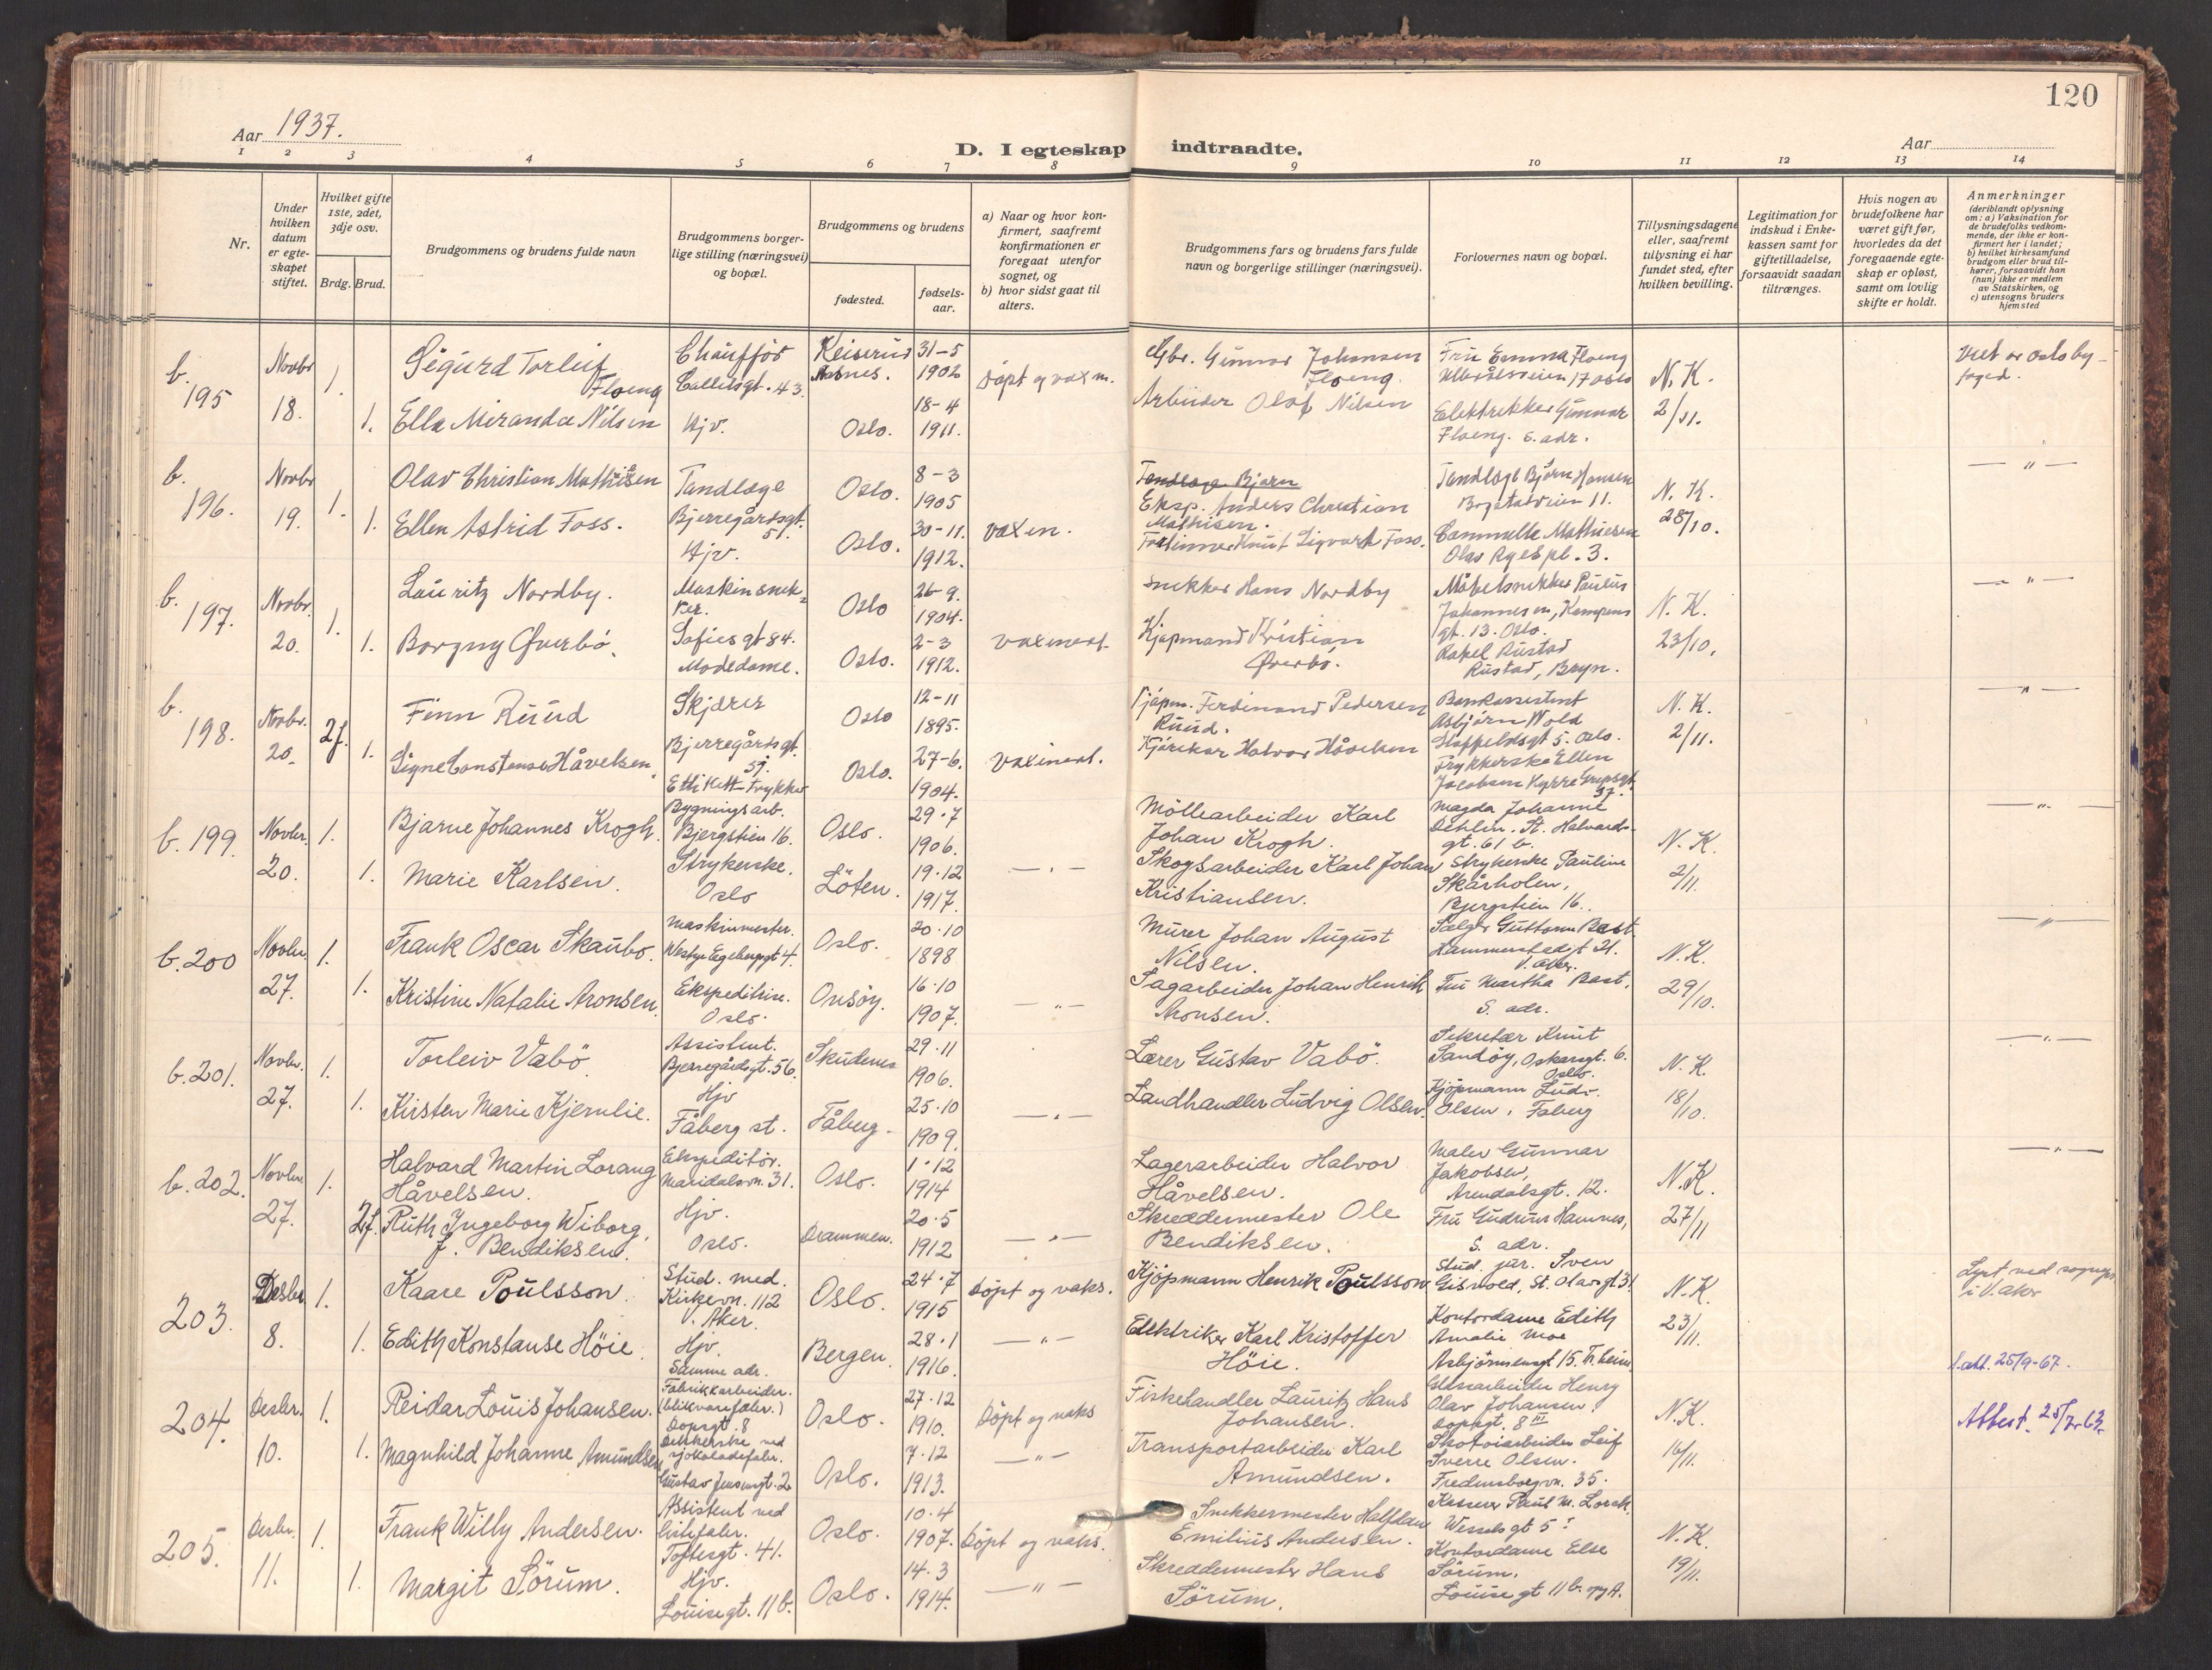 120
Aar 1937.
D. I egteskap indtraadte.
Aar
1 2 3 4 5 6 7 8 9 10 11 12 13 14
Nr.
Under hvilken datum er egteskapet stiftet.
Hvilket gifte 1ste, 2det, 3dje osv.
Brdg. Brud.
Brudgommens og brudens fulde navn
Brudgommens borgerlige stilling (næringsvei) og bopæl.
Brudgommens og brudens
fødested.
fødselsaar.
a) Naar og hvor konfirmert, saafremt konfirmationen er foregaat utenfor sognet, og
b) hvor sidst gaat til alters.
Brudgommens fars og brudens fars fulde navn og borgerlige stillinger (næringsvei).
Forlovernes navn og bopæl.
Tillysningsdagene eller, saafremt tillysning ei har fundet sted, efter hvilken bevilling.
Legitimation for indskud i Enkekassen samt for giftetilladelse, forsaavidt saadan tiltrænges.
Hvis nogen av brudefolkene har været gift før, hvorledes da det foregaaende egteskap er opløst, samt om lovlig skifte er holdt.
Anmerkninger
(deriblandt oplysning om: a) Vaksination for de brudefolks vedkommende, der ikke er konfirmert her i landet;
b) hvilket kirkesamfund brudgom eller brud tilhører, forsaavidt han (hun) ikke er medlem av Statskirken, og
c) utensogns bruders hjemsted
b. 195 Novbr 18. 1. Sigurd Torleif Floeng Chauffør Colletsgt. 43. 31-5 1902 døpt og vaxin. Gbr. Gunnar Johansen Floeng. Fru Emma Floeng Ullevålsveien 17 Oslo N.K. 2/11. Viet av Oslo byfoged.
1. Ella Miranda Nilsen Hjv. Oslo. 18-4 1911. Arbeider Olaf Nilsen Elektrikker Gunnar Floeng. s. adr.
b. 196. Novbr 19. 1. Olav Christian Mathisen Tandlæge Bjerregårdsgt. 51. Oslo. 8-3 1905 Tandlæge Bjørn Eksp. Anders Christian Mathisen. Tandlæge Bjørn Hansen Bogstadveien 11. N.K. 28/10. — " —
1. Ellen Astrid Foss. Hjv. Oslo. 30-11. 1912. vaxin. Knut Sigvart Foss. Mathiesen Olav Ryes pl. 3.
b. 197. Novbr. 20. 1. Lauritz Nordby. Maskinsnekker. Sofies gt 84. Oslo 26-9. 1904. Snekker Hans Nordby Møbelsnekker Paulus Johannesen, Kampens gt. 13. Oslo. N.K. 23/10. — " —
1. Borgny Øverbø. Modedame. Oslo. 2-3 1912. vaxinert. Kjøpmand Kristian Øverbø. Rakel Rustad Rustad, Bryn.
b. 198. Novbr. 20. 2f. Finn Ruud Skjærer Bjerregårdsgt. Oslo 12-11 1895. Kjøpm. Ferdinand Pedersen Ruud. Bankassistent Asbjørn Wold Stoffeldsgt 5. Oslo. N.K. 2/11. — " —
1. Signe Constanse Håvelsen. Etikett-trykker Oslo. 27-6. 1904. vaxinert. Halvor Håvelsen Trykkerske Ellen Jacobsen Kyrre Grepsgt. 37.
b. 199. Novbr. 20. 1. Bjarne Johannes Krogh. Bygningsarb. Bjergstien 16. Oslo. 29.7 1906. Møllearbeider Karl Johan Krogh. Magda Johanne Dehlin. St. Halvardsgt. 61 b. N.K. 2/11. — " —
1. Marie Karlsen. Strykerske. Oslo Löten. 19.12 1917. — " — Skogsarbeider Karl Johan Kristiansen. Strykerske Pauline Skårholen, Bjergstien 16.
b. 200 Novbr. 27. 1. Frank Oscar Skaubo. Maskinmester. Westye Egebergsgt 4. Oslo. 20.10 1898 Murer Johan August Nilsen. Sælger Guttorm Rast. Hammerstadgt 21. V. Aker. N.K. 29/10. — " —
1. Kristine Natalie Aronsen. Ekspeditrise. Oslo. Onsøy. 16.10 1907. — " — Sagarbeider Johan Henrik Aronsen. Fru Martha Rast. S. adr.
b. 201. Novbr. 27. 1. Torleiv Vabö. Assistent. Bjerregårdsgt. 56. Skudenes 29.11 1906. Lærer Gustav Vabö. Sekretær Knut Sandöy, Oskarsgt. 6. Oslo. N.K. 18/10. — " —
1. Kirsten Marie Kjernlie. Hjv Fåberg st. Fåberg. 25.10 1909. — " — Landhandler Ludvig Olsen. Kjöpmann Ludv. Olsen, Faberg
b. 202. Novbr. 27. 1. Halvard Martin Lorang Håvelsen. Ekspeditør. Maridalsvn. 31. Oslo. 1.12 1914 Lagerarbeider Halvor Håvelsen. Maler Gunnar Jakobsen, Arendalsgt. 12. N.K. 27/11 — " —
2f. Ruth Ingeborg Wiborg, f. Bendiksen. Hjv. Oslo. Drammen. 20.5 1912 — " — Skreddermester Ole Bendiksen. Fru Gudrun Hamnes, S. adr.
203. Desbr 8. 1. Kaare Poulsson. Stud. med. Kirkevn. 112 V. Aker. Oslo. 24.7 1915 Döpt og vaks. Kjöpmann Henrik Poulsson Stud. jur. Sven Gisvold, St. Olavsgt 31 N.K. 23/11. Lyst ved sogne i V. Aker
1. Edith Konstanse Höie Hjv. Samme adr. Bergen. 28.1 1916. — " — Elektriker Karl Kristoffer Höie. Kontordame Edith Amalie Moe Asbjörnsensgt 15. Tr.heim. 1.att. 25/9-67.
204. Desbr. 10. 1. Reidar Louis Johansen. Fabrikkarbeider. (blikvarefabr.) Dopsgt. 8 Oslo. 27.12 1910. Döpt og vaks Fiskehandler Lauritz Hans Johansen. Henry Olav Johansen. Dopsgt. 8 III N.K. 16/11. Attest. 25/7-63.
1. Magnhild Johanne Amundsen ved sjokoladefabr. Gustav Jensensgt. 2 Oslo. 7.12 1913. — " — Transportarbeider Karl Amundsen. Skotøiarbeider Leif Sverre Olsen. Fredensborgvn. 35.
205. Desbr. 11. 1. Frank Willy Andersen. Assistent ved Toftesgt. 41. Oslo. 10.4 1907. Döpt og vaks. Snekkermester Halfdan Emilius Andersen. Kasserer Paul M. Lorck. Wesselsgt 5 I N.K. 19/11.
1. Margit Sörum. Hjv. Louisegt. 11 b. Oslo. 14.3 1914. — " — Skreddermester Hans Sörum. Kontordame Else Sörum. Louise gt 11 b.